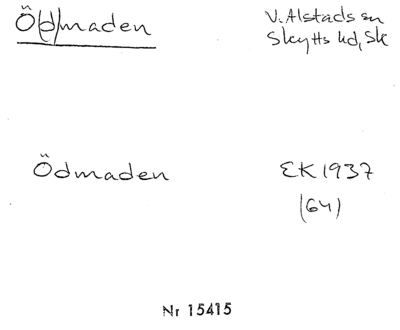 Ö(d)maden
V. Alstads sn
Skytts hd, Sk
Ödmaden
EK 1937
(64)
Nr 15415